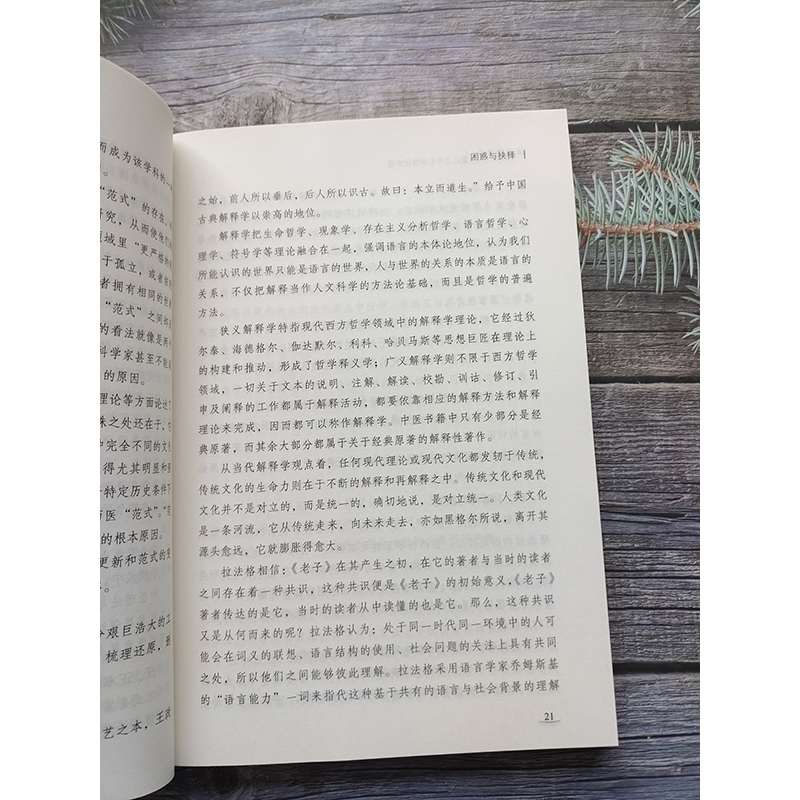 而成为该学科的一
“范式”的存在,
研究,从而使他们
领域里“更严格
于孤立,或者在
者拥有相同的世
“范式”之间
的看法就像是两
科学家甚至不能
的原因。
理论等方面论述了
殊之处还在于,它
中完全不同的文化
得尤其明显和
于特定历史条件下
“范式”。
的根本原因。
更新和范式的
艰巨浩大的工
梳理还原,
艺之本,王政
困惑与抉择
之始,前人所以垂后,后人所以识古。故曰:本立而道生。”给予中国
古典解释学以崇高的地位。
解释学把生命哲学、现象学、存在主义分析哲学、语言哲学、心
理学、符号学等理论融合在一起,强调语言的本体论地位,认为我们
所能认识的世界只能是语言的世界,人与世界的关系的本质是语言的
关系,不仅把解释当作人文科学的方法论基础,而且是哲学的普遍
方法。
狭义解释学特指现代西方哲学领域中的解释学理论,它经过狄
尔泰、海德格尔、伽达默尔、利科、哈贝马斯等思想巨匠在理论上
的构建和推动,形成了哲学释义学;广义解释学则不限于西方哲学
领域,一切关于文本的说明、注解、解读、校勘、训诂、修订、引
申及阐释的工作都属于解释活动,都要依靠相应的解释方法和解释
理论来完成,因而都可以称作解释学。中医书籍中只有少部分是经
典原著,而其余大部分都属于关于经典原著的解释性著作。
从当代解释学观点看,任何现代理论或现代文化都发轫于传统,
传统文化的生命力则在于不断的解释和再解释之中。传统文化和现代
文化并不是对立的,而是统一的,确切地说,是对立统一。人类文化
是一条河流,它从传统走来,向未来走去,亦如黑格尔所说,离开其
源头愈远,它就膨胀得愈大。
拉法格相信:《老子》在其产生之初,在它的著者与当时的读者
之间存在着一种共识,这种共识便是《老子》的初始意义,《老子》
著者传达的是它,当时的读者从中读懂的也是它。那么,这种共识
又是从何而来的呢?拉法格认为:处于同一时代同一环境中的人可
能会在词义的联想、语言结构的使用、社会问题的关注上具有共同
之处,所以他们之间能够彼此理解。拉法格采用语言学家乔姆斯基
的“语言能力”一词来指代这种基于共有的语言与社会背景的理解
21